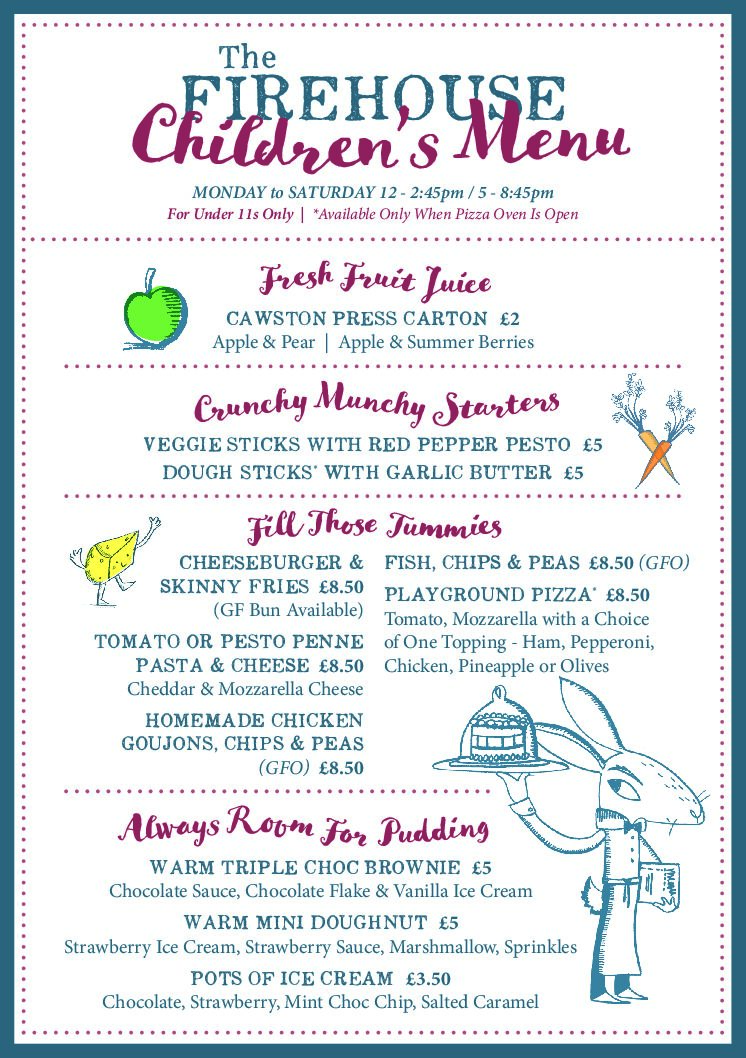 The
FIREHOUSE
Children's Menu
MONDAY to SATURDAY 12 - 2:45pm / 5 - 8:45pm
For Under 11s Only | *Available Only When Pizza Oven Is Open
Fresh Fruit Juice
CAWSTON PRESS CARTON £2
Apple & Pear | Apple & Summer Berries
Crunchy Munchy Starters
VEGGIE STICKS WITH RED PEPPER PESTO £5
DOUGH STICKS* WITH GARLIC BUTTER £5
Fill Those Tummies
CHEESEBURGER &
SKINNY FRIES £8.50
(GF Bun Available)
TOMATO OR PESTO PENNE
PASTA & CHEESE £8.50
Cheddar & Mozzarella Cheese
HOMEMADE CHICKEN
GOUJONS, CHIPS & PEAS
(GFO) £8.50
FISH, CHIPS & PEAS £8.50 (GFO)
PLAYGROUND PIZZA* £8.50
Tomato, Mozzarella with a Choice
of One Topping - Ham, Pepperoni,
Chicken, Pineapple or Olives
Always Room For Pudding
WARM TRIPLE CHOC BROWNIE £5
Chocolate Sauce, Chocolate Flake & Vanilla Ice Cream
WARM MINI DOUGHNUT £5
Strawberry Ice Cream, Strawberry Sauce, Marshmallow, Sprinkles
POTS OF ICE CREAM £3.50
Chocolate, Strawberry, Mint Choc Chip, Salted Caramel